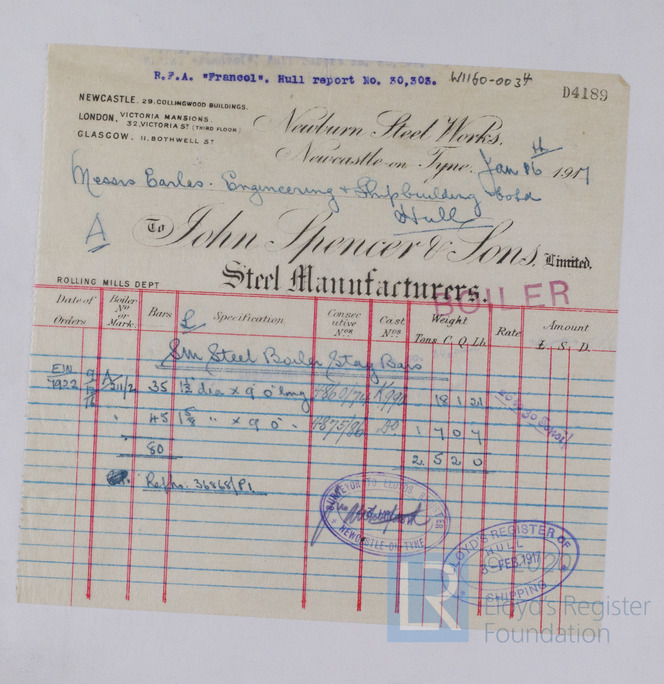 R.F.A. "Francol". Hull report No. 30,303. W1160-0034
D4189
NEWCASTLE. 29, COLLINGWOOD BUILDINGS.
LONDON, VICTORIA MANSIONS.
32, VICTORIA ST (THIRD FLOOR)
GLASGOW. 11, BOTHWELL ST
Newburn Steel Works.
Newcastle-on-Tyne, Jan 16th 1917
Messrs Earles. Engineering & Shipbuilding
Hull
A
To John Spencer & Sons, Limited.
Steel Manufacturers.
ROLLING MILLS DEPT
BOILER
Date of Orders Boiler No or Mark. Bars Specification Consecutive Nos. Cast Nos. Weight Tons C. Q. Lb. Rate Amount £. S. D.
SM Steel Boiler Stay Bars
EIN 1922 35 1½ dia × 9' 0" long 18 1 21
" 45 1⅝ " × 9' 0" 1 7 0 7
80 2 5 2 0
Ref no. 36868/P1
SURVEYOR TO LLOYD'S REGISTER
NEWCASTLE-ON-TYNE
LLOYD'S REGISTER OF
HULL
3-FEB.1917
SHIPPING
LR Lloyd's Register
Foundation